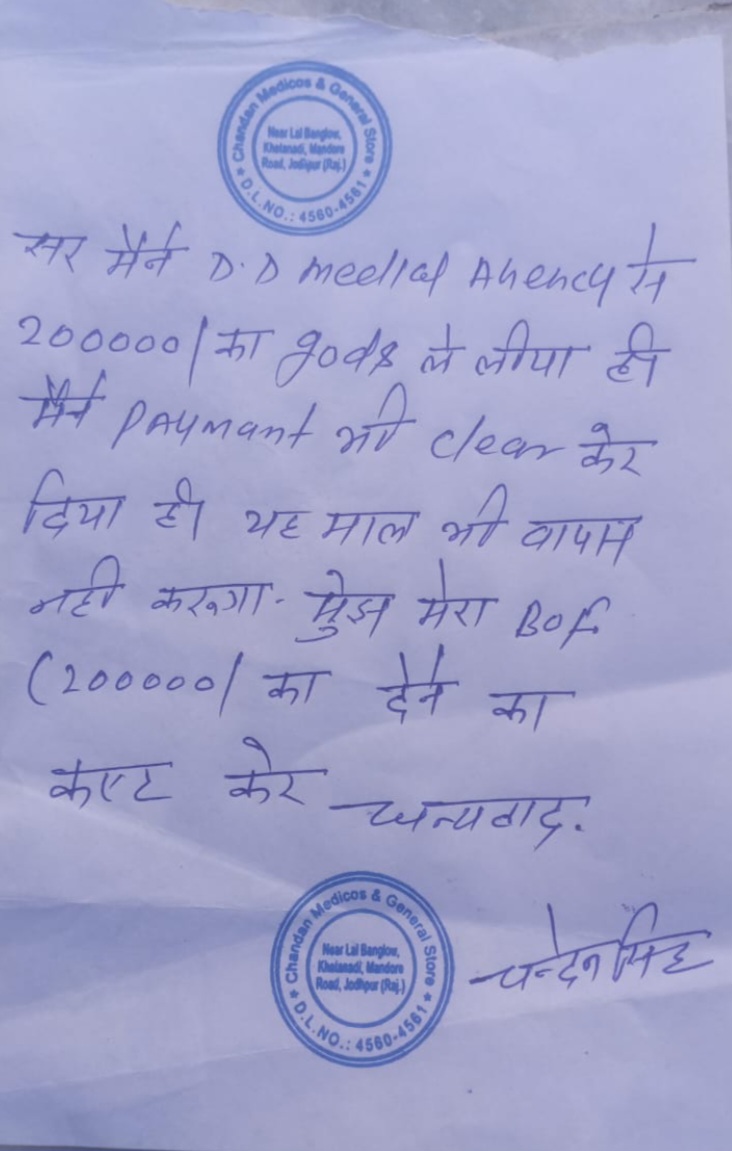 Chandan Medicos & General Store
Near Lal Banglow,
Khetanadi, Mandore
Road, Jodhpur (Raj.)
★ D.L.NO.: 4560-4561 ★
सर मैने D.D medical Ahency से
200000/ का gods ले लीया है।
मैने PAymant भी clear केर
दिया है। यह माल भी वापस
नही करूगा. मुझे मेरा Bof.
(200000/ का देने का
कष्ट केर धन्यवाद.
Chandan Medicos & General Store
Near Lal Banglow,
Khetanadi, Mandore
Road, Jodhpur (Raj.)
★ D.L.NO.: 4560-4561 ★
चन्देन सिह